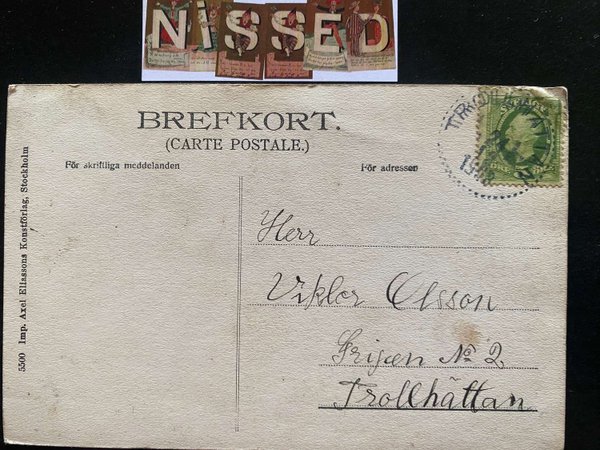 NISSED
BREFKORT.
(CARTE POSTALE.)
För skriftliga meddelanden
För adressen
5500 Imp. Axel Eliassons Konstförlag, Stockholm
Herr
Viktor Olsson
No 2
Trollhättan